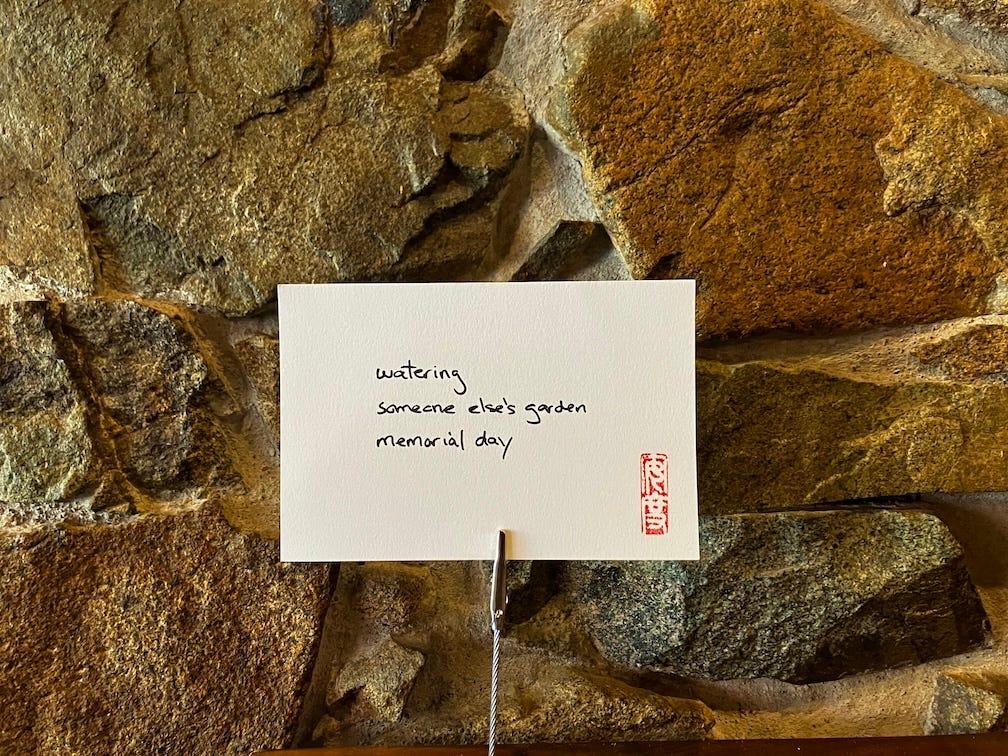 watering
someone else's garden
memorial day